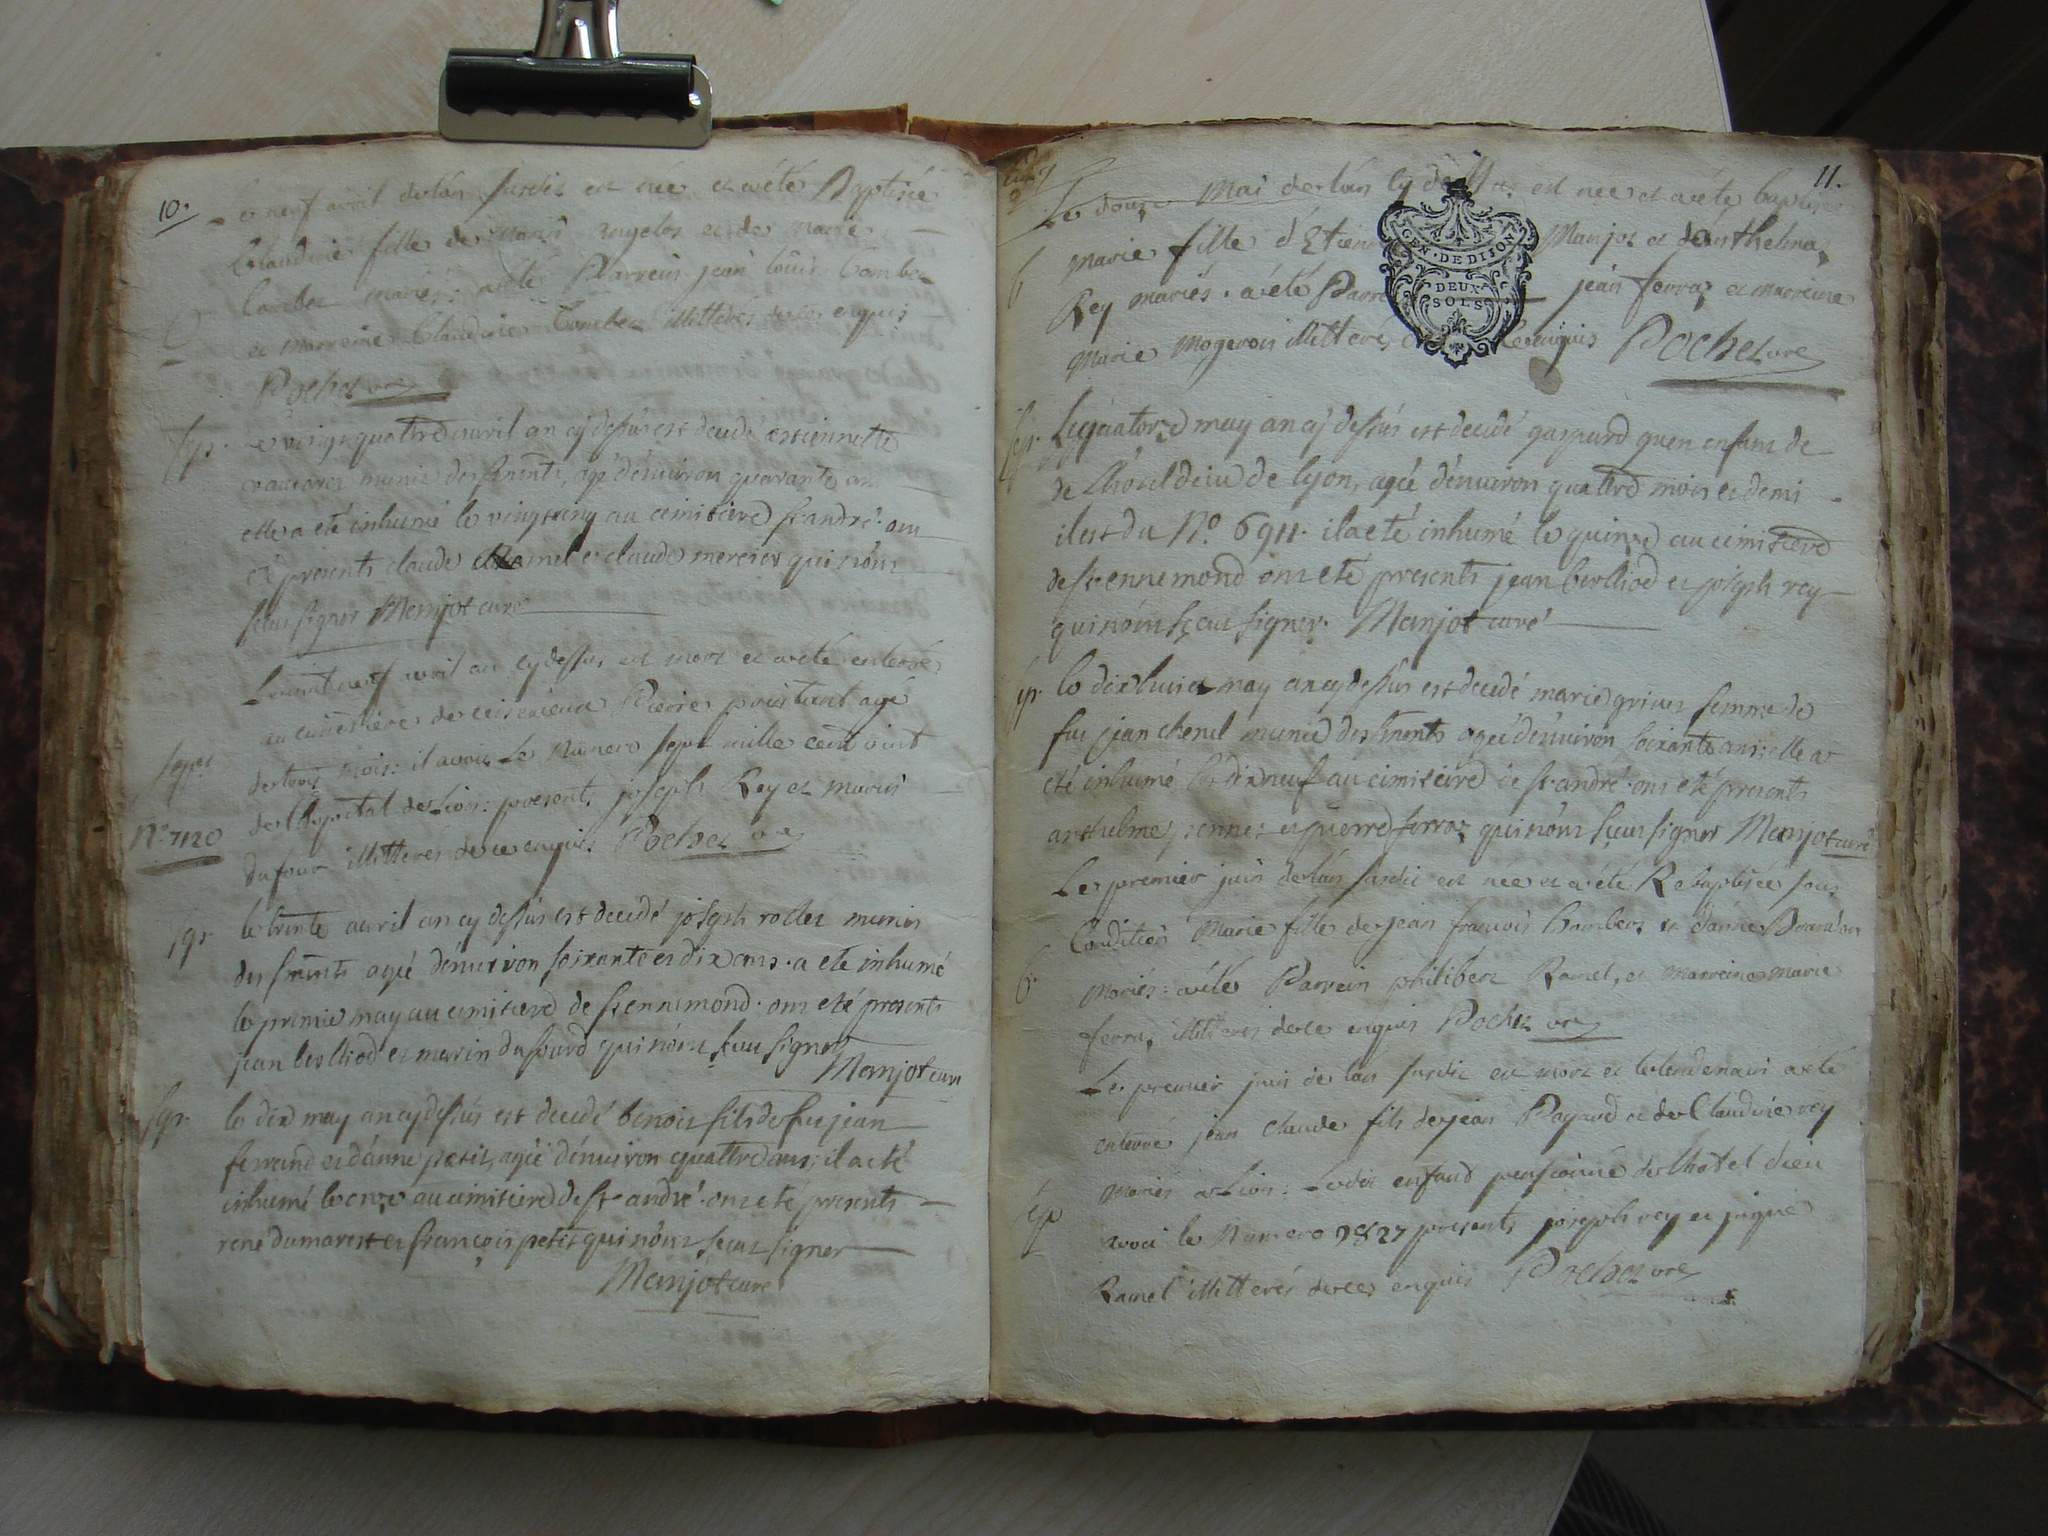 10.
neuf avril de l'an susdit est née et a été Baptisée
Claudine fille de et de marie
Combet mariés: a été Parrein jean loüis Combet
et Marreine Claudine Combet illitterés de ce enquis
Pochet vre
sep.
le vingt quattre avril an cy dessus est decedé estiennette
munie des sments, agé d'enuiron quarante ans
elle a été inhumé le vingt cinq au cimitiere st andré. ont
été presents claude Ramel et claude mercier qui n'ont
sceu signer Manjot curé
Le vint neuf avril an cy dessus est mort et a été enterré
au cimetiere de Pierre agé
sep.
de trois mois: il avoit Le Numero sept mille cent vint
de l'hopital de Lion: presents joseph Rey et marin
N° 7120
dufour illitterés de ce enquis Pochet vre
sep.
le trente avril an cy dessus est decedé joseph rollet munis
des sments agé d'enuiron soixante et dix ans. a été inhumé
le premier may au cimitiere de st ennemond. ont eté presents
jean berlliod et marin dufourd qui n'ont sceu signer
Manjot curé
sep.
le dix may an cy dessus est decedé benoit fils de feu jean
ferrand et d'anne petit, agé d'enuiron quattre ans; il a eté
inhumé le onze au cimitiere de st andré. ont eté presents
rené dumarest et françois petit qui n'ont sceu signer
Manjot curé
11.
Le douze Mai de l'an cy dessus est née et a été baptisée
GEN · DE DIJON
DEUX
SOLS
b
Marie fille d'Etienne Manjot et d'Anthelma
Rey mariés. a été Parrein jean ferraz et marreine
Marie Mogerois illitteres de ce enquis Pochet vre
sep.
Le quatorze may an cy dessus est decedé gaspard quen enfant de
de L'hôtel dieu de lyon, agé d'enuiron quattre mois et demi
il est du N° 6911. il a eté inhumé le quinze au cimitiere
de st ennemond ont eté presents jean berlliod et joseph rey
qui n'ont sçeu signer. Manjot curé
sep.
le dix huict may an cy dessus est decedé marie grivet femme de
feu jean chenel munie des sments agée d'enuiron soixante ans: elle a
eté inhumé le dix neuf au cimitiere de st andré. ont eté presents
anthelme jennet et pierre ferraz qui n'ont sceu signer Manjot curé
Le premier juin de l'an susdit est née et a été Rebaptisée sous
Condition Marie fille de jean françois et d'anne
b.
Mariés: a été Parrein philibert Ramel, et marreine marie
ferraz illitteres de ce enquis Pochet vre
Le premier juin de l'an susdit est mort et le lendemain a été
enterré jean claude fils de jean Payard et de Claudine rey
Mariés a Lion: Ledit enfant pensionné de l'hôtel dieu
sep
avoit le Numero 7827 presents joseph rey et
Ramel illitterés de ce enquis Pochet vre